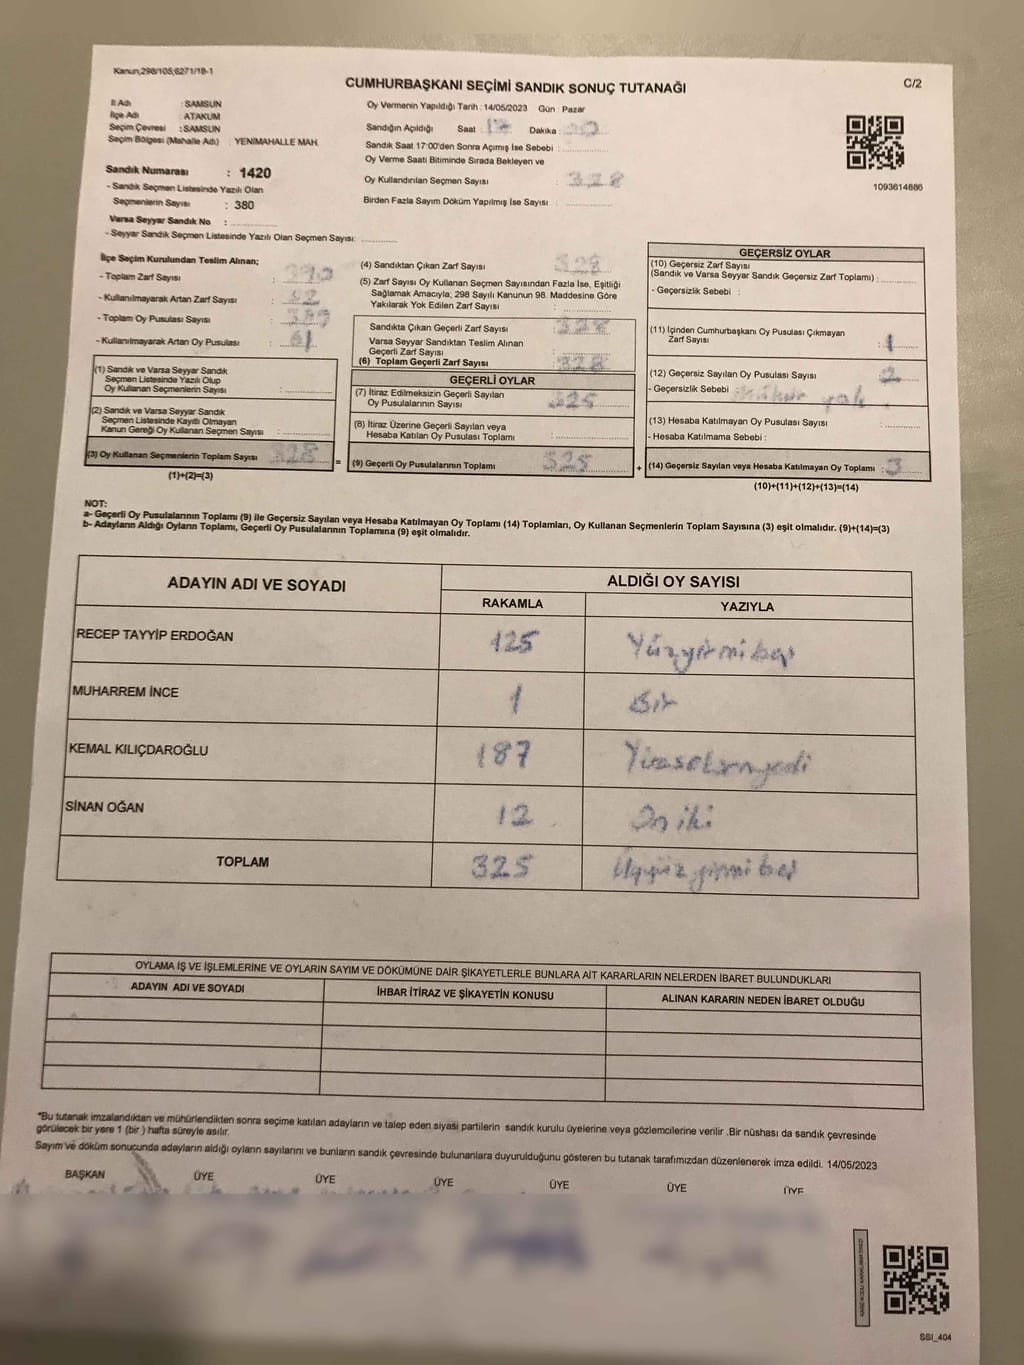 Kanun;298/105;6271/18-1
CUMHURBAŞKANI SEÇİMİ SANDIK SONUÇ TUTANAĞI
C/2
İl Adı : SAMSUN
İlçe Adı : ATAKUM
Seçim Çevresi : SAMSUN
Seçim Bölgesi (Mahalle Adı) : YENİMAHALLE MAH.
Sandık Numarası : 1420
- Sandık Seçmen Listesinde Yazılı Olan
Seçmenlerin Sayısı : 380
Varsa Seyyar Sandık No : ............
- Seyyar Sandık Seçmen Listesinde Yazılı Olan Seçmen Sayısı: ............
Oy Vermenin Yapıldığı Tarih : 14/05/2023 Gün : Pazar
Sandığın Açıldığı Saat : 17 Dakika :
Sandık Saat 17:00'den Sonra Açımış İse Sebebi : ............
Oy Verme Saati Bitiminde Sırada Bekleyen ve
Oy Kullandırılan Seçmen Sayısı : 328
Birden Fazla Sayım Döküm Yapılmış İse Sayısı : ............
1093614886
İlçe Seçim Kurulundan Teslim Alınan;
- Toplam Zarf Sayısı : 390
- Kullanılmayarak Artan Zarf Sayısı : 62
- Toplam Oy Pusulası Sayısı : 389
- Kullanılmayarak Artan Oy Pusulası : 61
(1) Sandık ve Varsa Seyyar Sandık
Seçmen Listesinde Yazılı Olup
Oy Kullanan Seçmenlerin Sayısı : ............
(2) Sandık ve Varsa Seyyar Sandık
Seçmen Listesinde Kayıtlı Olmayan
Kanun Gereği Oy Kullanan Seçmen Sayısı : ............
(3) Oy Kullanan Seçmenlerin Toplam Sayısı 328
(1)+(2)=(3)
(4) Sandıktan Çıkan Zarf Sayısı : 328
(5) Zarf Sayısı Oy Kullanan Seçmen Sayısından Fazla İse, Eşitliği
Sağlamak Amacıyla; 298 Sayılı Kanunun 98. Maddesine Göre
Yakılarak Yok Edilen Zarf Sayısı : ............
Sandıkta Çıkan Geçerli Zarf Sayısı : 328
Varsa Seyyar Sandıktan Teslim Alınan
Geçerli Zarf Sayısı : ............
(6) Toplam Geçerli Zarf Sayısı : 328
GEÇERLİ OYLAR
(7) İtiraz Edilmeksizin Geçerli Sayılan
Oy Pusulalarının Sayısı : 325
(8) İtiraz Üzerine Geçerli Sayılan veya
Hesaba Katılan Oy Pusulası Toplamı : ............
= (9) Geçerli Oy Pusulalarının Toplamı 325 +
GEÇERSİZ OYLAR
(10) Geçersiz Zarf Sayısı
(Sandık ve Varsa Seyyar Sandık Geçersiz Zarf Toplamı) : ............
- Geçersizlik Sebebi :
(11) İçinden Cumhurbaşkanı Oy Pusulası Çıkmayan
Zarf Sayısı : 1
(12) Geçersiz Sayılan Oy Pusulası Sayısı : 2
- Geçersizlik Sebebi : Mühür yok
(13) Hesaba Katılmayan Oy Pusulası Sayısı : ............
- Hesaba Katılmama Sebebi :
(14) Geçersiz Sayılan veya Hesaba Katılmayan Oy Toplamı : 3
(10)+(11)+(12)+(13)=(14)
NOT:
a- Geçerli Oy Pusulalarının Toplamı (9) ile Geçersiz Sayılan veya Hesaba Katılmayan Oy Toplamı (14) Toplamları, Oy Kullanan Seçmenlerin Toplam Sayısına (3) eşit olmalıdır. (9)+(14)=(3)
b- Adayların Aldığı Oyların Toplamı, Geçerli Oy Pusulalarının Toplamına (9) eşit olmalıdır.
ADAYIN ADI VE SOYADI ALDIĞI OY SAYISI
RAKAMLA YAZIYLA
RECEP TAYYİP ERDOĞAN 125 Yüzyirmi beş
MUHARREM İNCE 1 Bir
KEMAL KILIÇDAROĞLU 187 Yüzseksenyedi
SİNAN OĞAN 12 On iki
TOPLAM 325 Üçyüz yirmi beş
OYLAMA İŞ VE İŞLEMLERİNE VE OYLARIN SAYIM VE DÖKÜMÜNE DAİR ŞİKAYETLERLE BUNLARA AİT KARARLARIN NELERDEN İBARET BULUNDUKLARI
ADAYIN ADI VE SOYADI İHBAR İTİRAZ VE ŞİKAYETİN KONUSU ALINAN KARARIN NEDEN İBARET OLDUĞU
*Bu tutanak imzalandıktan ve mühürlendikten sonra seçime katılan adayların ve talep eden siyasi partilerin sandık kurulu üyelerine veya gözlemcilerine verilir .Bir nüshası da sandık çevresinde
görülecek bir yere 1 (bir ) hafta süreyle asılır.
Sayım ve döküm sonucunda adayların aldığı oyların sayılarını ve bunların sandık çevresinde bulunanlara duyurulduğunu gösteren bu tutanak tarafımızdan düzenlenerek imza edildi. 14/05/2023
BAŞKAN ÜYE ÜYE ÜYE ÜYE ÜYE ÜYE
SSI_404